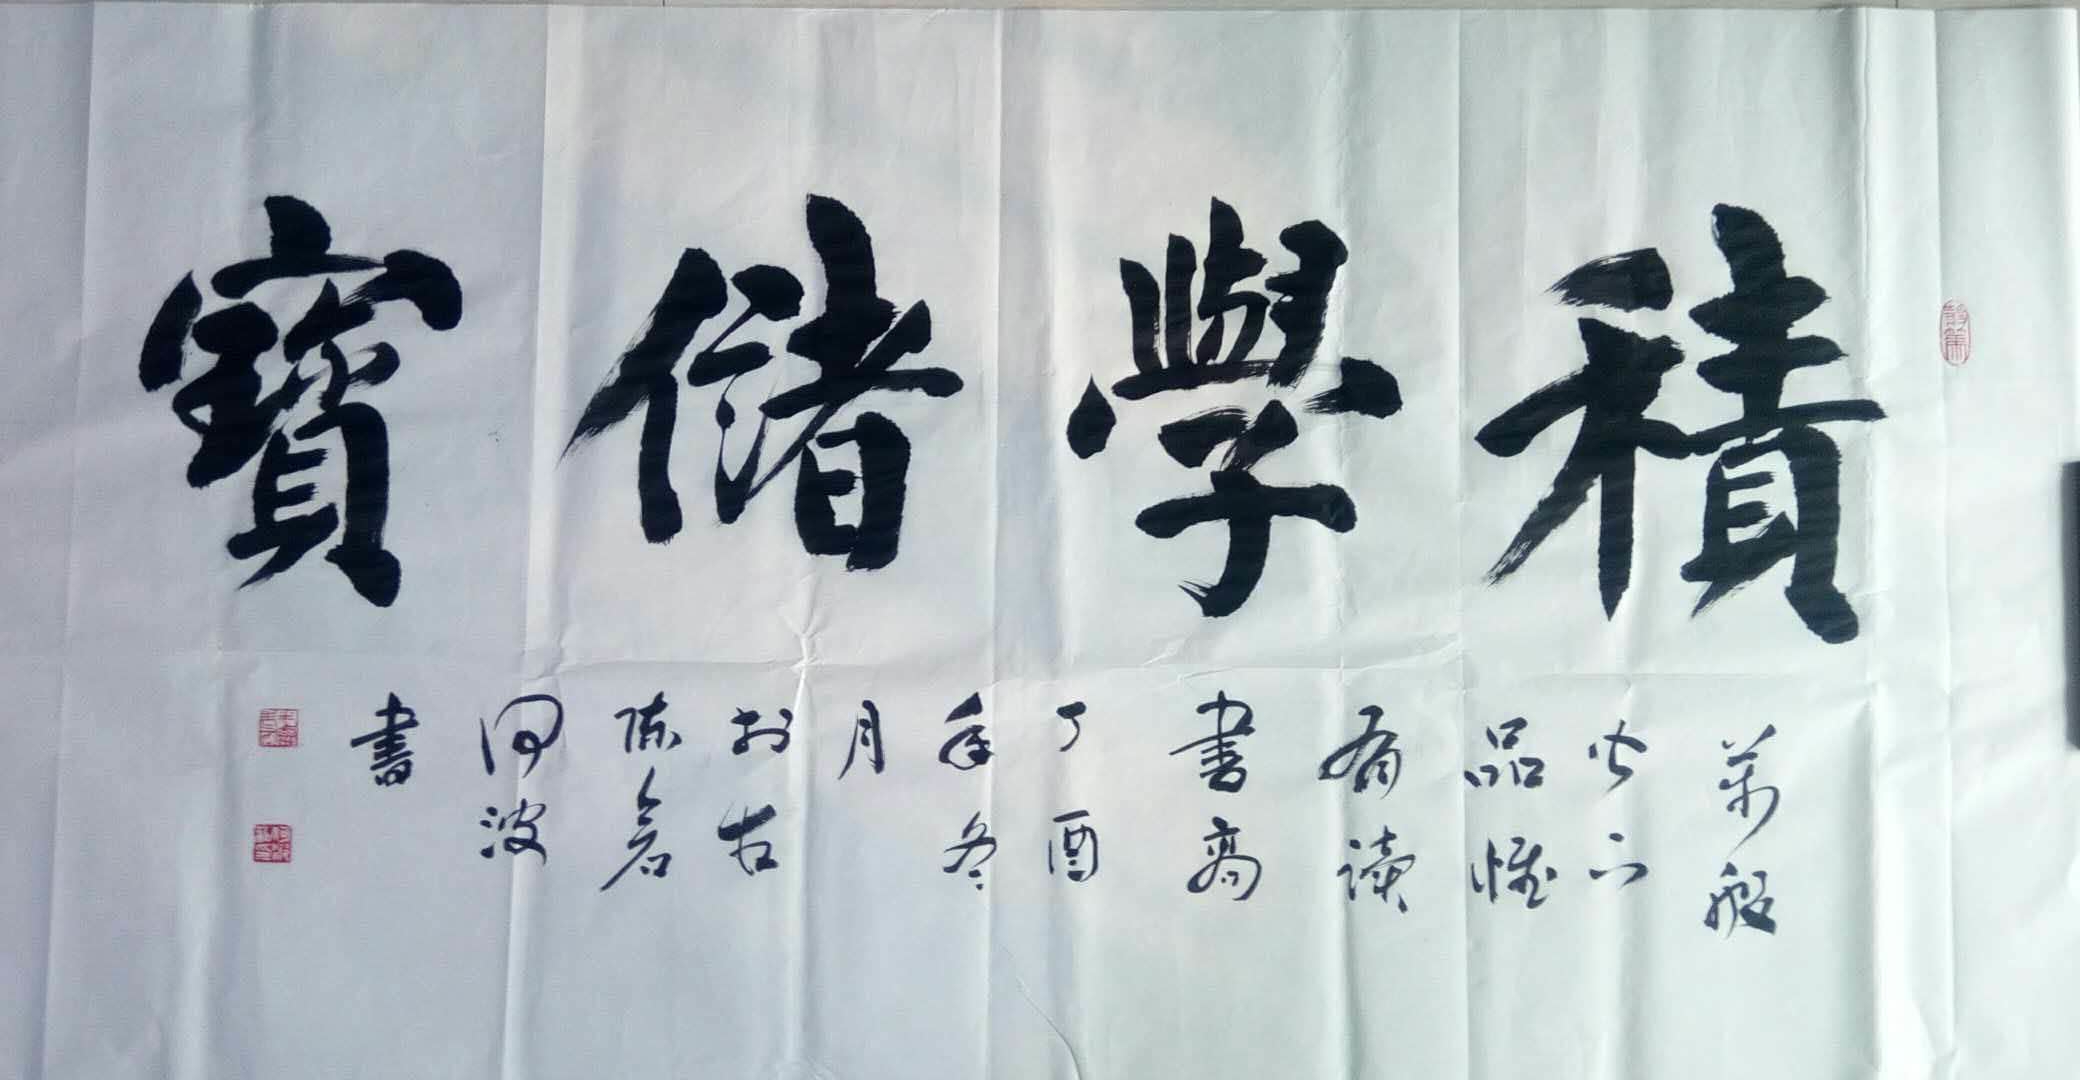 積學儲寶
萬般
皆下
品惟
有讀
書高
丁酉
年冬
月
於古
陈倉
同波
書